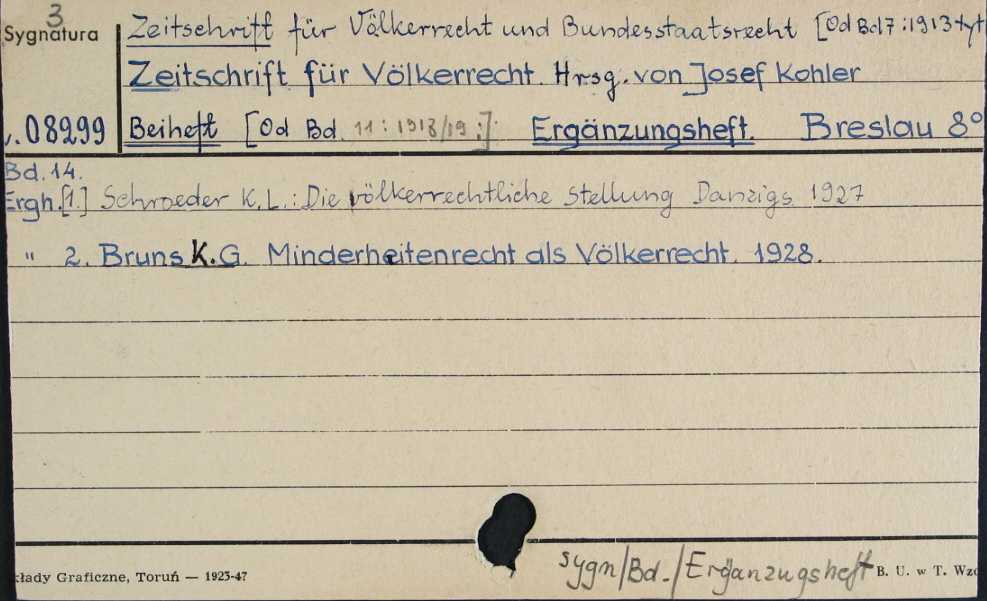 3
Sygnatura
Zeitschrift für Völkerrecht und Bundesstaatsrecht [Od Bd 7:1913 tyt
Zeitschrift für Völkerrecht. Hrsg. von Josef Kohler
08299
Beiheft [Od Bd. 11:1918/19:]. Ergänzungsheft. Breslau 8°
Bd. 14.
Ergh. [1.] Schroeder K. L.: Die völkerrechtliche Stellung Danzigs 1927
" 2. Bruns K. G. Minderheitenrecht als Völkerrecht. 1928.
sygn/Bd./Ergänzugsheft
kłady Graficzne, Toruń — 1923-47
B. U. w T. Wzo